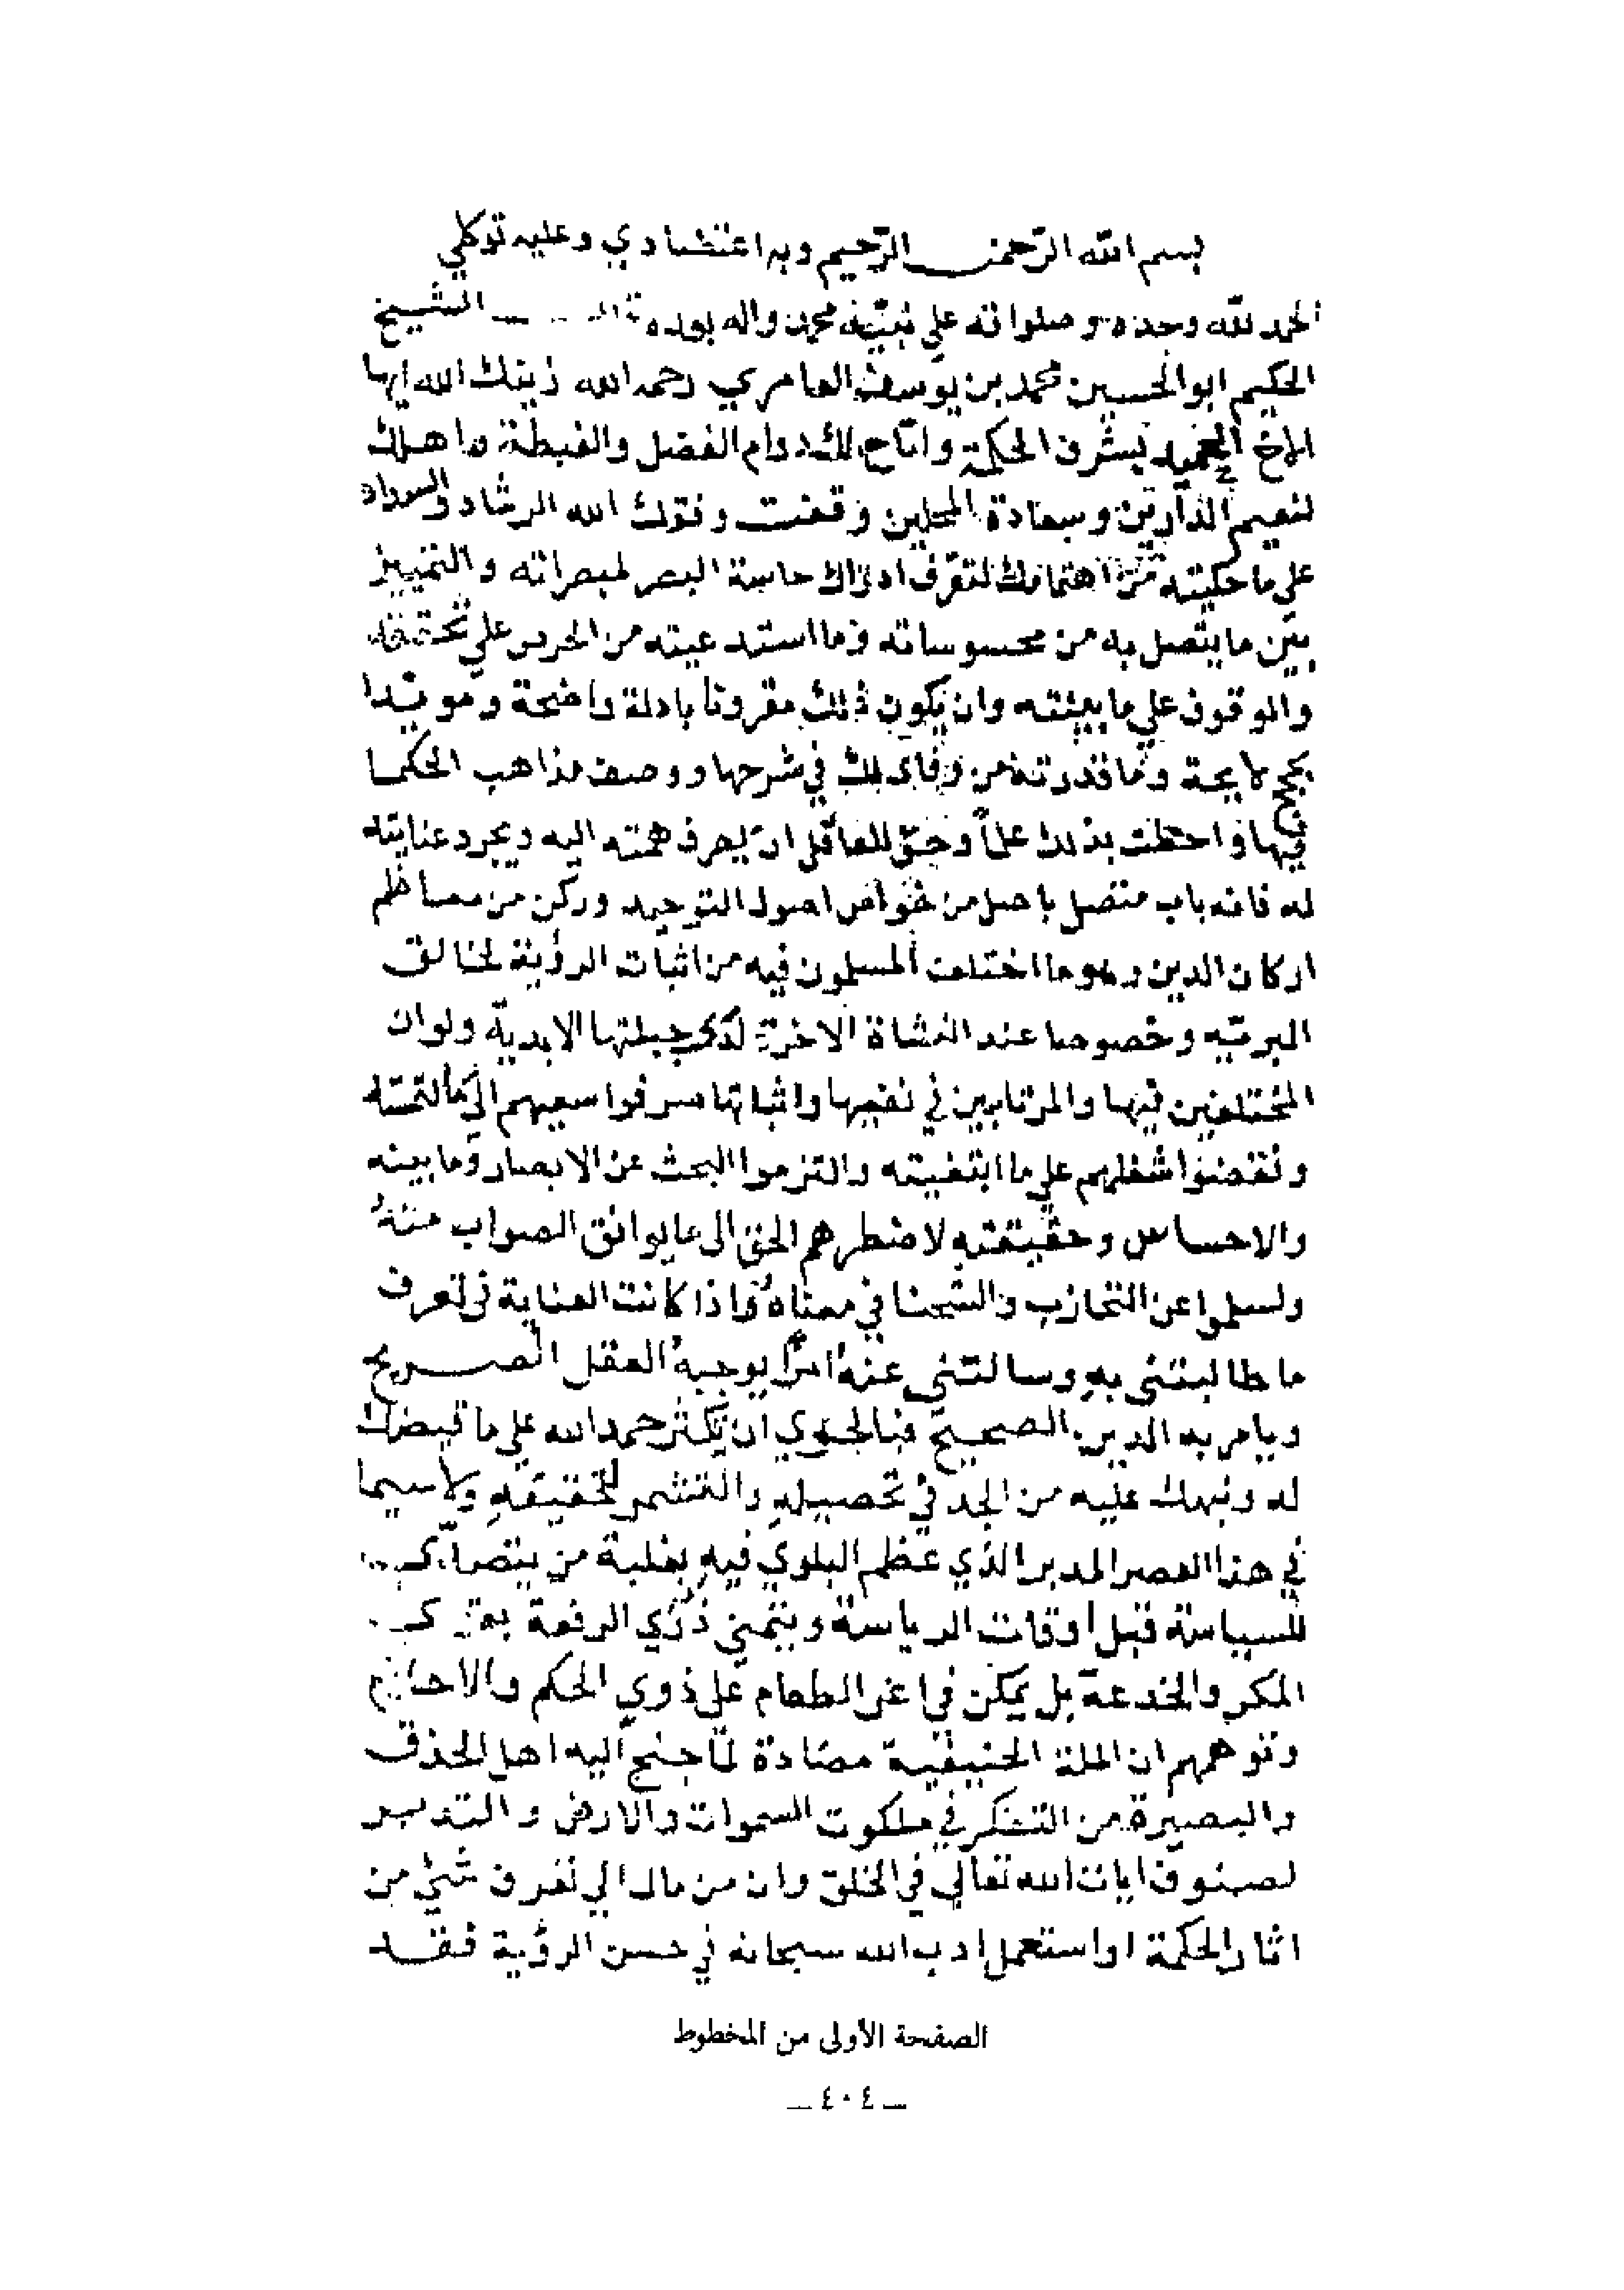 بسم الله الرّحمن الرّحيم وبه اعتضادي وعليه توكلي
الحمد لله وحده وصلواته علي نبيّه محمد واله بعده قال الشيخ
الحكيم ابو الحسين محمد بن يوسف العامري رحمه الله زينك الله ايها
الاخ الحميد بشرف الحكمة واتاح لك دوام الفضل والغبطة وا هلك
لنعيم الدارين وسعادة المحلين وقفت وفقك الله الرشاد والسداد
علي ما حكيته من اهتمامك لتعرّف ادراك حاسة البصر لمبصراته والتمييز
بين ما يتصل به من محسوساته وما استدعيته من الحرص علي تحققه
والوقوف علي ما بينته وان يكون ذلك مقرونا بادلة واضحة ومويدا
بحجج لايحة وما قدرته من وفاى لك في شرحها ووصف مذاهب الحكما
فيها واحطت بذلك علماً وحقّ للعاقل ان يصرف همته اليه ويجرد عنايته
له فانه باب متصل باصل من غوامض اصول التوحيد وركن من معاظم
اركان الدين وهو ما اختلف المسلمون فيه من اثبات الرؤية لخالق
البريّه وخصوصا عند النشاة الاخرة لدى جبلتها الابديّة ولوان
المختلفين فيها والمرتابين في نفيها واثباتها صرفوا سعيهم الى ما التمسته
ونقضوا شغلهم علي ما ابتغيته والتزموا البحث عن الابصار وما بينه
والاحساس وحقيقته لاضطرهم الحق الى ما يوافق الصواب منهُ
ولسلموا عن التحازب والشحنا في معناهُ واذا كانت العناية في تعرف
ما طالبتنى به وسالتنى عنهُ امراً يوجبهُ العقل الصريح
ويامر به الدين الصحيح فبالحري ان تكثر حمد الله علي ما قيضك
له ونبهك عليه من الجد في تحصيله والتشمر لتحقيقه ولا سيما
في هذا العصر المدبر الذي عظم البلوي فيه بغلبة من يتصدا
للسياسة قبل اوقات الرياسة ويتمني ذُرَي الرفعة
المكر والخدعة بل يمكن في اغر الطعام علي ذوي الحكم والاحلام
وتوهمهم ان الملة الحنيفية مضادة لما جنح اليه اهل الحذق
والبصيرة من التفكر في ملكوت السموات والارض والتدبر
لصنوف ايات الله تعالي في الخلق وان من مال الي تعرف شئ من
اثار الحكمة او استعمل ادب الله سبحانه في حسن الرؤية فقد
الصفحة الأولى من المخطوط
ــ ٤٠٤ ــ